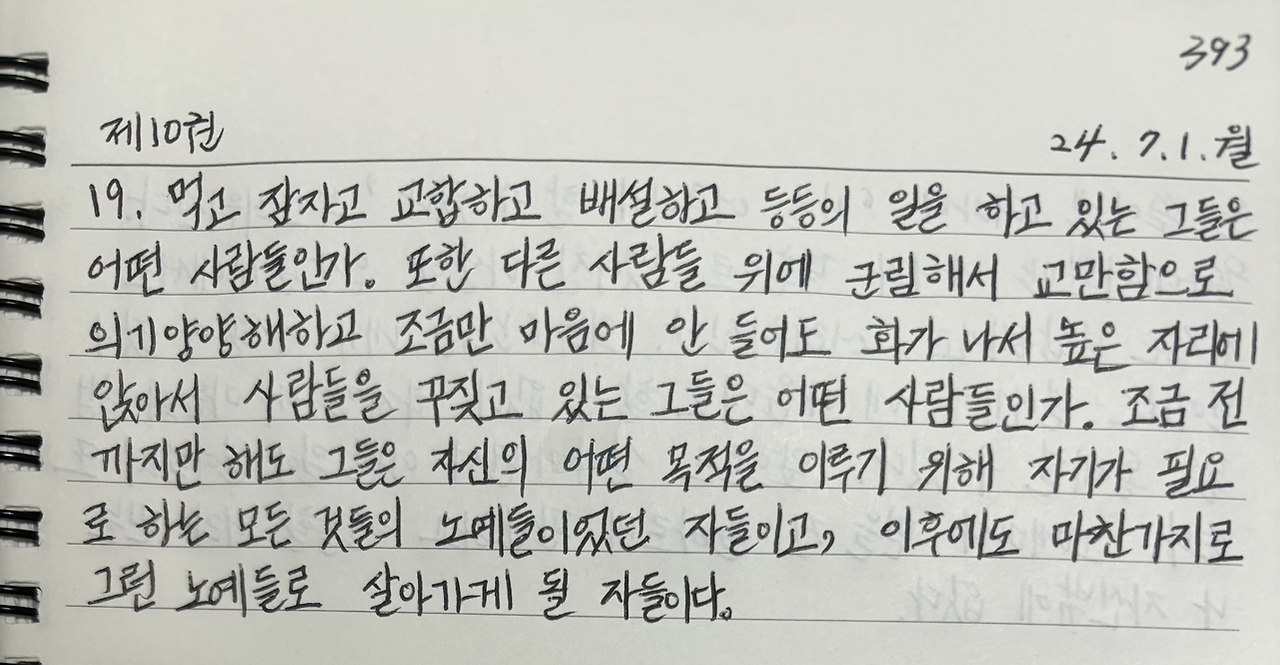 393
제10권 24. 7. 1. 월
19. 먹고 잠자고 교합하고 배설하고 등등의 일을 하고 있는 그들은
어떤 사람들인가. 또한 다른 사람들 위에 군림해서 교만함으로
의기양양해하고 조금만 마음에 안 들어도 화가 나서 높은 자리에
앉아서 사람들을 꾸짖고 있는 그들은 어떤 사람들인가. 조금 전
까지만 해도 그들은 자신의 어떤 목적을 이루기 위해 자기가 필요
로 하는 모든 것들의 노예들이었던 자들이고, 이후에도 마찬가지로
그런 노예들로 살아가게 될 자들이다.